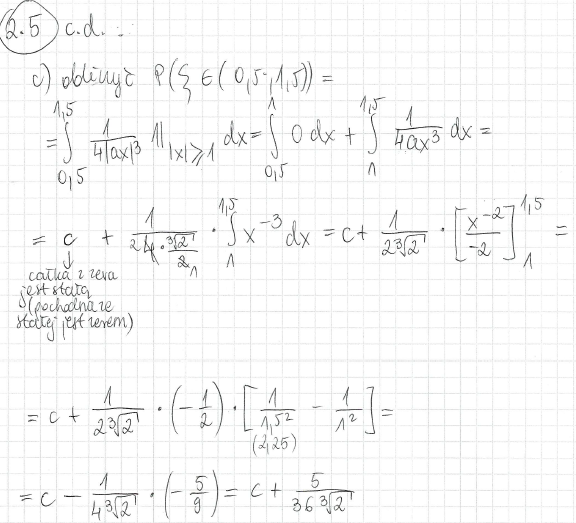 2.5 c.d. ...
c) obliczyć P(ξ ∈ (0,5 ; 1,5)) =
= ∫_{0,5}^{1,5} 1/(4|ax|³) 𝟙_{|x|⩾1} dx = ∫_{0,5}^{1} 0 dx + ∫_{1}^{1,5} 1/(4ax³) dx =
= c + 1/(4·∛2/2) · ∫_{1}^{1,5} x⁻³ dx = c + 1/(2∛2) · [x⁻²/-2]_{1}^{1,5} =
całka z zera
jest stałą
(pochodna ze
stałej jest zerem)
= c + 1/(2∛2) · (-1/2) · [1/1,5² - 1/1²] =
(2,25)
= c - 1/(4∛2) · (-5/9) = c + 5/(36∛2)